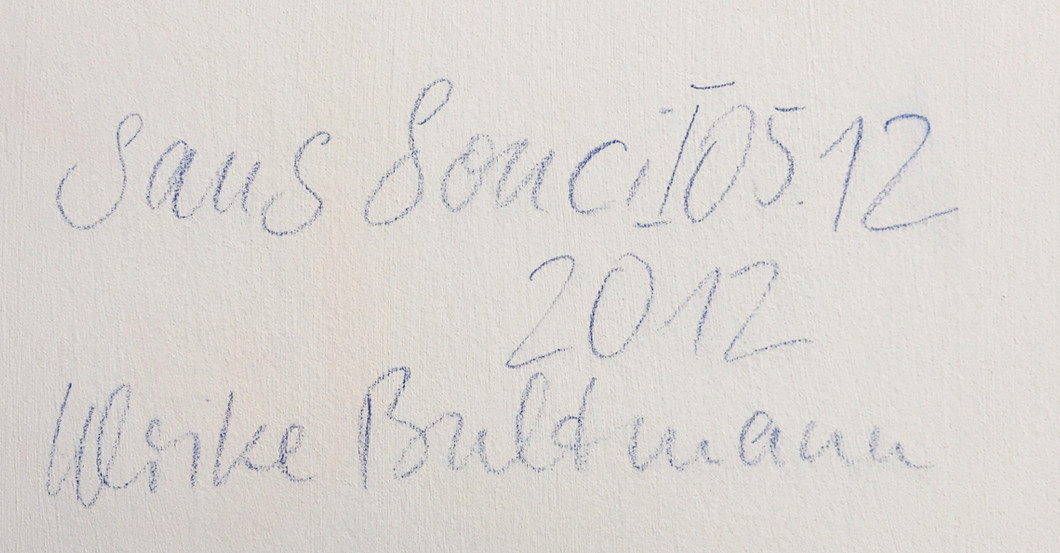 Sans Souci I 05.12
2012
Ulrike Bultmann